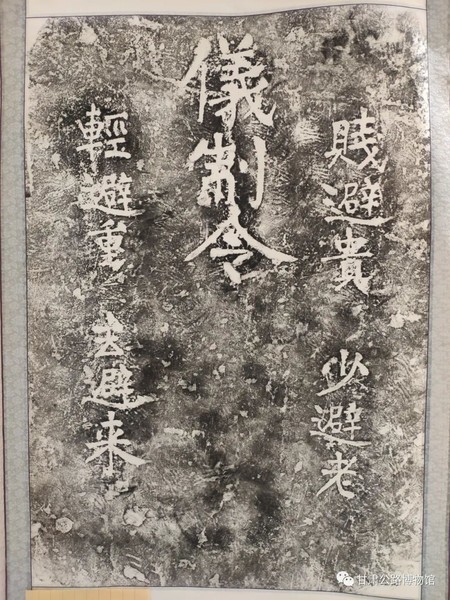 賤避貴 少避老
儀制令
輕避重 去避来
甘肃公路博物馆